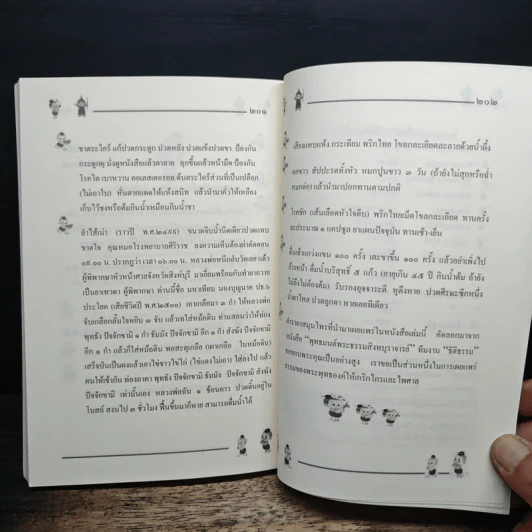 ๒๐๑
ชาตระไคร้ แก้ปวดกระดูก ปวดหลัง ปวดแข้งปวดขา ป้องกัน
กระดูกผุ นั่งดูหนังสือแล้วตาลาย ลุกขึ้นแล้วหน้ามืด ป้องกัน
โรคไต เบาหวาน คอเลสเตอรอล ต้นตระไคร้ส่วนที่เป็นเปลือก
(ไม่เอาใบ) หั่นตากแดดให้แห้งสนิท แล้วนำมาคั่วให้เหลือง
เก็บไว้ชงหรือต้มกินน้ำเหมือนกินน้ำชา
ลำไส้เน่า (ราวปี พ.ศ.๒๔๙๙) ขนาดจิบน้ำนิดเดียวปวดแทบ
ขาดใจ คุณหมอโรงพยาบาลศิริราช ลงความเห็นต้องผ่าตัดตอน
๐๙.๐๐ น. ปรากฏว่า เวลา ๐๖.๐๐ น. หลวงพ่อหนีกลับวัดเลย แล้ว
ผู้พิพากษาหัวหน้าศาลจังหวัดสิงห์บุรี มาเยี่ยมพร้อมกับทำยาถวาย
เป็นยาเทวดา ผู้พิพากษา ท่านนี้ชื่อ มหาเทียน นองบุญนาค ปธ.๖
ประโยค (เสียชีวิตปี พ.ศ.๒๕๐๑) เอาเกลือมา ๑ กำ ให้หลวงพ่อ
จับเกลือกลั้นใจหยิบ ๓ จับ แล้วเทใส่หม้อดิน ท่านสอนว่าให้ท่อง
พุทธัง ปัจจักขามิ ๑ กำ ธัมมัง ปัจจักขามิ อีก ๑ กำ สังฆัง ปัจจักขามิ
อีก ๑ กำ แล้วก็ใส่หม้อดิน พอสะตุเกลือ (เผาเกลือ ในหม้อดิน)
เสร็จปั่นเป็นผงแล้วเอาไข่ขาวไข่ไก่ (ไข่แดงไม่เอา) ใส่ลงไป แล้ว
คนให้เข้ากัน ท่องคาถา พุทธัง ปัจจักขามิ ธัมมัง ปัจจักขามิ สังฆัง
ปัจจักขามิ เท่านั้นเอง หลวงพ่อฉัน ๑ ช้อนคาว ปวดดิ้นอยู่ใน
โบสถ์ สงบไป ๓ ชั่วโมง ฟื้นขึ้นมาก็หาย สามารถดื่มน้ำได้
๒๐๒
กระเทียม พริกไทย โขลกละเอียดละลายด้วยน้ำผึ้ง
สับปะรดทั้งหัว หมกปูนขาว ๓ วัน (ถ้ายังไม่สุกหรือฉ่ำ
หมกต่อ) แล้วนำมาปอกทานตามปกติ
โรคชัก (เส้นเลือดหัวใจตีบ) พริกไทยเม็ดโขลกละเอียด ทานครั้ง
ละประมาณ ๑ แคปซูล ยาแผนปัจจุบัน ทานเช้า-เย็น
ตื่นเช้าแกว่งแขน ๑๐๐ ครั้ง เตะขาขึ้น ๑๐๐ ครั้ง แล้วอย่าเพิ่งไป
ล้างหน้า ดื่มน้ำบริสุทธิ์ ๕ แก้ว (อายุเกิน ๔๕ ปี กินน้ำต้ม ถ้ายัง
ไม่ถึงไม่ต้องต้ม) รับรองอุจจาระดี หูดีงหาย ปวดศีรษะซีกหนึ่ง
น้ำตาไหล ปวดลูกตา หายเลยทีเดียว
ตำรายาสมุนไพรที่นำมาเผยแพร่ในหนังสือเล่มนี้ คัดลอกมาจาก
หนังสือ “พุทธมนต์พระธรรมสิงหบุราจารย์” ทีมงาน “ธิติธรรม”
ขอขอบพระคุณเป็นอย่างสูง เราขอเป็นส่วนหนึ่งในการเผยแพร่
ธรรมของพระพุทธองค์ให้เกริกไกรและ ไพศาล